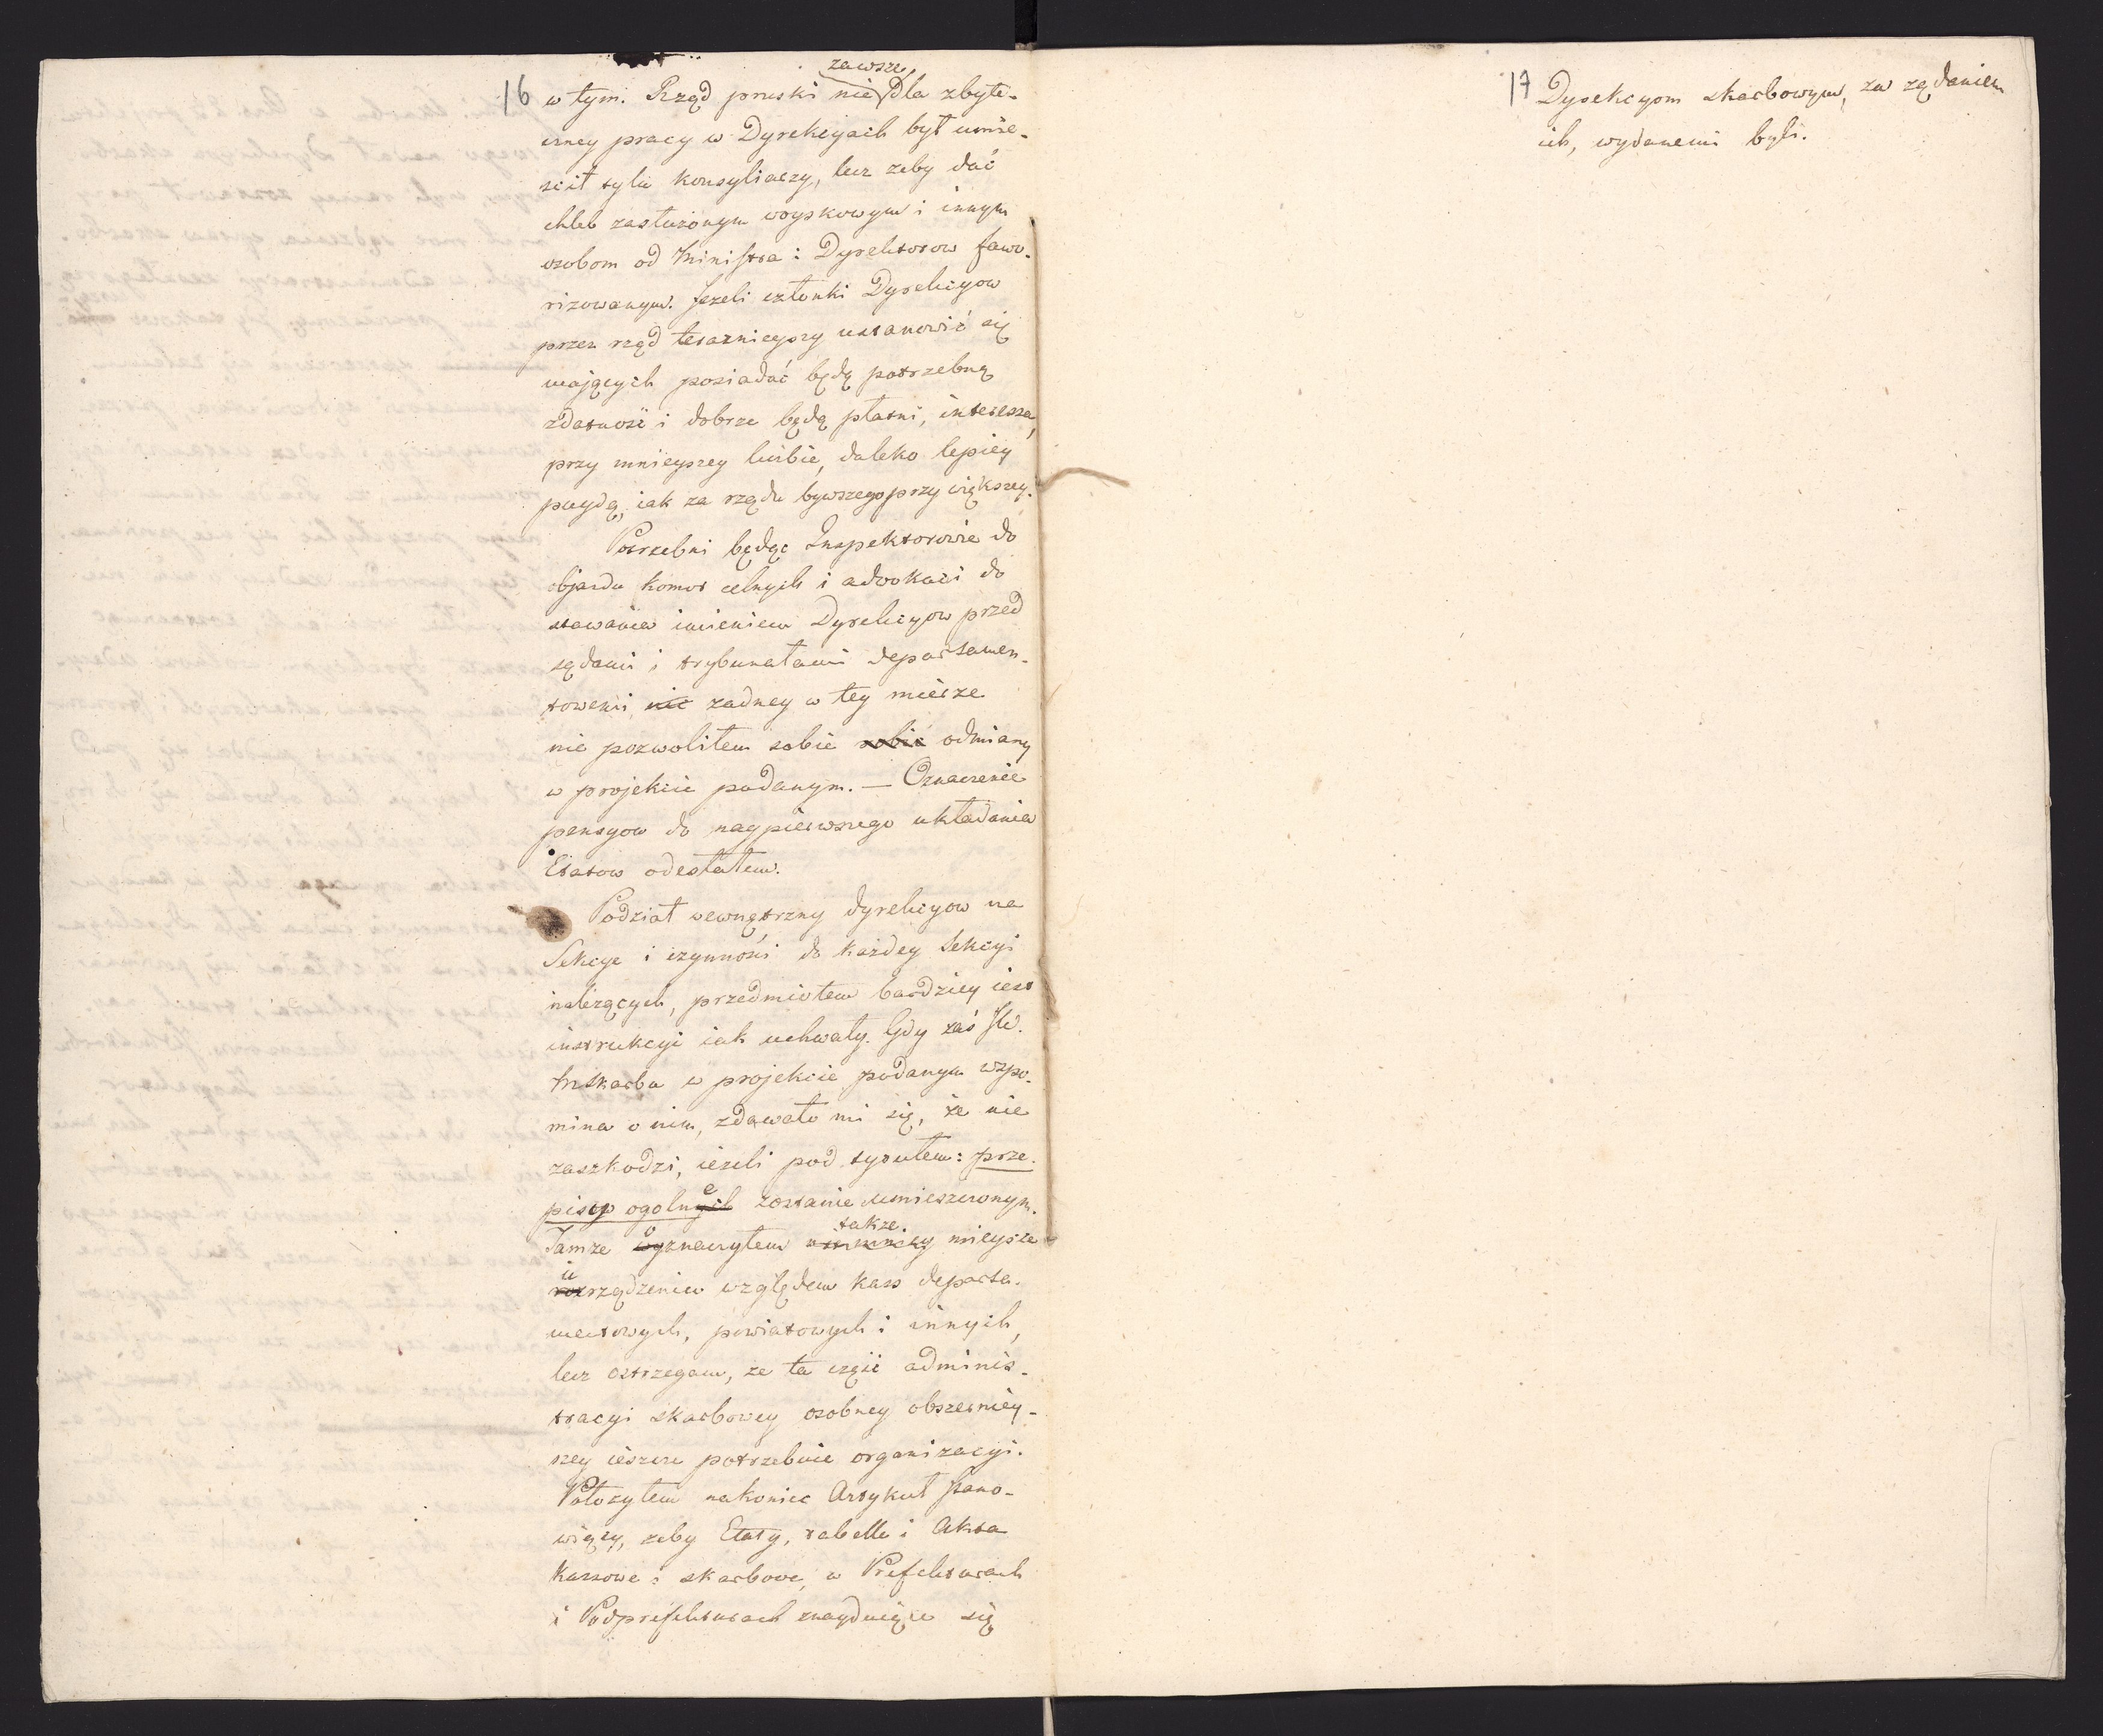 zawsze
16 w tym. Rząd pruski nie dla zbyte-
czney pracy w Dyrekcyach był umie-
ścił tylu konsyliarzy, lecz żeby dać
chleb zasłużonym woyskowym i innym
osobom od Ministra i Dyrektorow fawo-
rizowanym. Jezeli członki Dyrekcyow
przez rząd teraznieyszy ustanowić się
maiących posiadać będą potrzebną
zdatność i dobrze będą płatni, interessa,
przy mnieyszey liczbie, daleko lepiey
puydą, iak za rządu bywszego przy większey.
Potrzebni będąc Inspektorowie do
objazdu komor celnych i adwokaci do
stawania imieniem Dyrekcyow przed
sądami i trybunałami departamen-
towemi, nic zadney w tey mierze
nie pozwoliłem sobie robić odmiany
w projekcie podanym. — Oznaczenie
pensyow do naypierwszego układania
Etatow odesłałem.
Podział wewnętrzny dyrekcyow na
Sekcye i czynności do każdey Sekcyi
należących, przedmiotem bardziey iest
instrukcyi iak uchwały. Gdy zaś JW.
M. Skarbu w projekcie podanym wspo-
mina o nim, zdawało mi się, że nie
zaszkodzi, iezeli pod tytułem: prze-
pisy ogolne zostanie umieszczonym.
takze
Tamze oznaczyłem mieysce
urządzeniu względem kass departa-
mentowych, powiatowych i innych,
lecz ostrzegam, ze ta część adminis-
tracyi skarbowey osobney obszerniey-
szey ieszcze potrzebuie organizacyi.
Położyłem nakoniec Artykuł stano-
wiący, zeby Etaty, tabelle i Akta
Kassowe i skarbowe, w Prefekturach
i Podprefekturach znayduiące się
17 Dyrekcyom skarbowym, za ządaniem
ich, wydanemi byli.